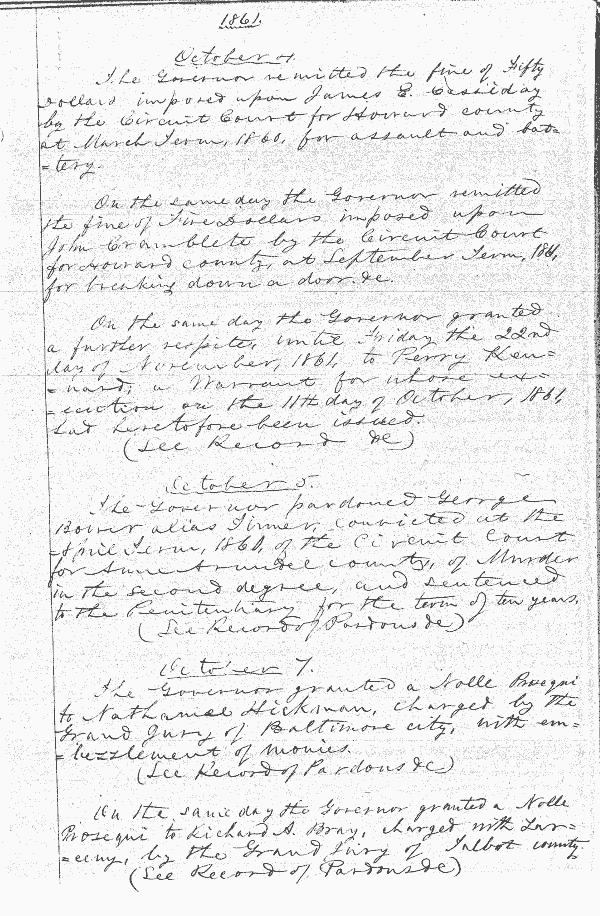 1861.
October 4.
The Governor remitted the fine of Fifty
Dollars imposed upon James E. Cassiday
by the Circuit Court for Howard county
at March Term, 1860, for assault and bat=
=tery.
On the same day the Governor remitted
the fine of Five Dollars imposed upon
John Cramblete by the Circuit Court
for Howard county, at September Term, 1861,
for breaking down a door &c.
On the same day the Governor granted
a further respite, until Friday the 22nd
day of November, 1861, to Perry Ken=
=nard, a Warrant for whose ex=
=ecution on the 11th day of October, 1861,
had heretofore been issued.
(See Record &c)
October 5.
The Governor pardoned George
Bower alias Turner, convicted at the
April Term, 1860, of the Circuit Court
for Anne Arundel county, of Murder
in the second degree, and sentenced
to the Penitentiary for the term of ten years.
(See Record of Pardons &c)
October 7.
The Governor granted a Nolle Prosequi
to Nathaniel Hickman, charged by the
Grand Jury of Baltimore city, with em=
=bezzlement of monies.
(See Record of Pardons &c)
On the same day the Governor granted a Nolle
Prosequi to Richard A. Bray, charged with Lar=
=ceny, by the Grand Jury of Talbot county.
(See Record of Pardons &c)